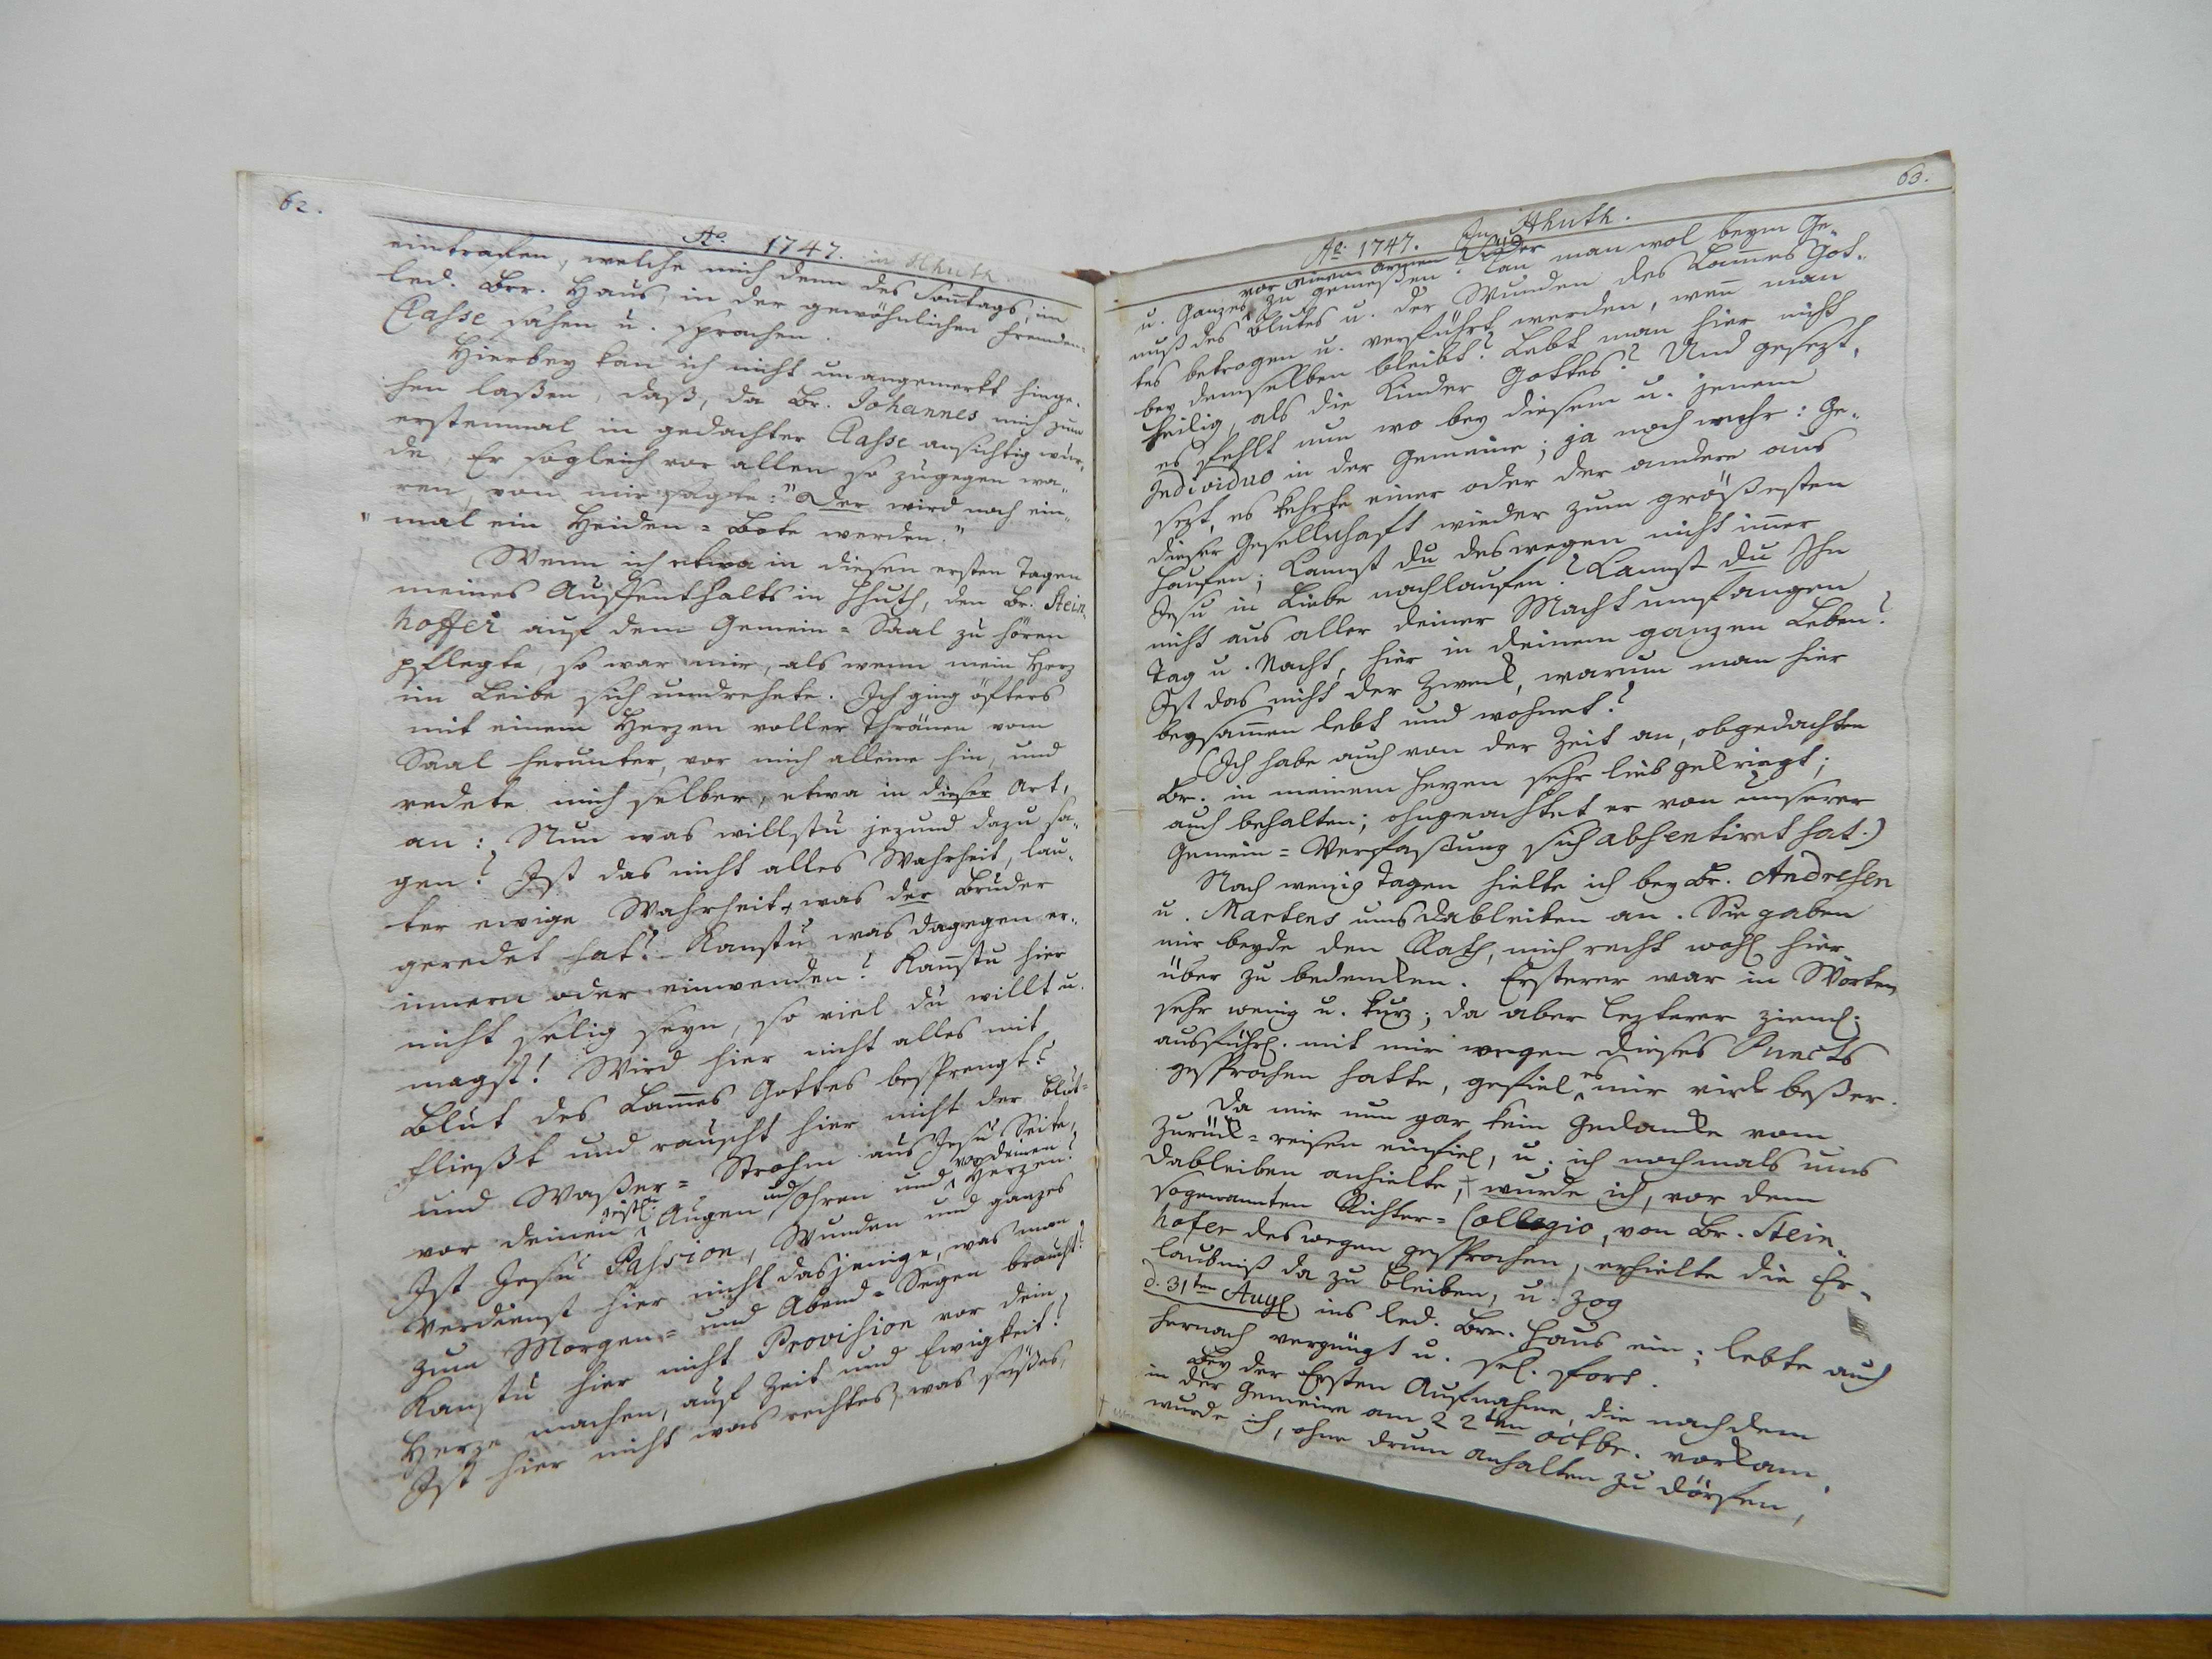 62.
Ao. 1747. in Hhuth
eintrafen, welche mich denn des Sontags, im
led. Brr. Haus, in der gewöhnlichen Fremden-
Classe sahen u. sprachen.
Hierbey kan ich nicht unangemerkt hinge-
hen laßen, daß, da Br. Johannes mich zum
erstenmal in gedachter Classe ansichtig wur-
de, Er sogleich vor allen so zugegen wa-
ren, von mir sagte: "Der wird noch ein-
"mal ein Heiden=Bote werden."
Wenn ich etwa in diesen ersten Tagen
meines Auffenthalts in Hhuth, den Br. Stein-
hoffer auf dem Gemein=Saal zu hören
pflegte, so war mir, als wenn mein Herz
im Leibe sich umdrehete. Ich ging öfters
mit einem Herzen voller Thränen vom
Saal herunter, vor mich alleine hin, und
redete mich selber, etwa in dieser Art,
an: Nun was willstu jezund dazu sa-
gen? Ist das nicht alles Wahrheit, lau-
ter ewige Wahrheit, was der Bruder
geredet hat? Kanstu was dagegen er-
innern oder einwenden? Kannstu hier
nicht selig seyn, so viel du willt u.
magst! Wird hier nicht alles mit
Blut des Lammes Gottes besprengt?
Fließt und rauscht hier nicht der Blut-
und Waßer=Strohm aus Jesu Seite,
vor deinen geistl. Augen, und Ohren und vor deinen Herzen?
Ist Jesu Passion, Wunden und ganzes
Verdienst hier nicht dasjenige, was man
zum Morgen= und Abend=Segen braucht?
Kanstu hier nicht Provision vor dein
Herze machen, auf Zeit und Ewigkeit!
Ist hier nicht was rechtes, was süßes,
63.
Ao. 1747. In Hhuth.
u. Ganzes vor einem armen Sünder zu genießen? Kan man wol beym Ge-
nuß des Blutes u. der Wunden des Lammes Got-
tes betrogen u. verführt werden, wenn man
bey demselben bleibt? Lebt man hier nicht
heilig, als die Kinder Gottes? Und gesezt,
es fehlt nun wo bey diesem u. jenem
Individuo in der Gemeine; ja noch mehr: Ge-
sezt, es kehrte einer oder der andere aus
dieser Gesellschaft wieder zum größesten
Haufen; Kannst du deswegen nicht immer
Jesu in Liebe nachlaufen? Kannst du Ihn
nicht aus aller deiner Macht umfangen
Tag u. Nacht, hier in deinem ganzen Leben?
Ist das nicht der Zweck, warum man hier
beysammen lebt und wohnet?
(Ich habe auch von der Zeit an, obgedachten
Br. in meinem Herzen sehr lieb gekriegt;
auch behalten; ohngeachtet er von unserer
Gemein=Verfassung sich absentiret hat.)
Nach wenig Tagen hielte ich bey Br. Andresen
u. Martens ums dableiben an. Sie gaben
mir beyde den Rath, mich recht wohl hier-
über zu bedencken. Ersterer war in Worten
sehr wenig u. kurz; da aber lezterer zieml.
ausführl. mit mir wegen dieses Puncts
gesprochen hatte, gefiel es mir viel beßer.
Da mir nun gar kein Gedancke vom
Zurück=reisen einfiel, u. ich nochmals ums
dableiben anhielte, + wurde ich, vor dem
sogenannten Richter=Collegio, von Br. Stein-
hofer deswegen gesprochen, erhielte die Er-
laubniß da zu bleiben, u. zog
d. 31ten Aug. ins led. Brr. Haus ein; lebte auch
hernach vergnügt u. sel. fort.
Bey der Ersten Aufnahme, die nachdem
in der Gemeine am 22ten octbr. vorkam,
wurde ich, ohne drum anhalten zu dörfen,